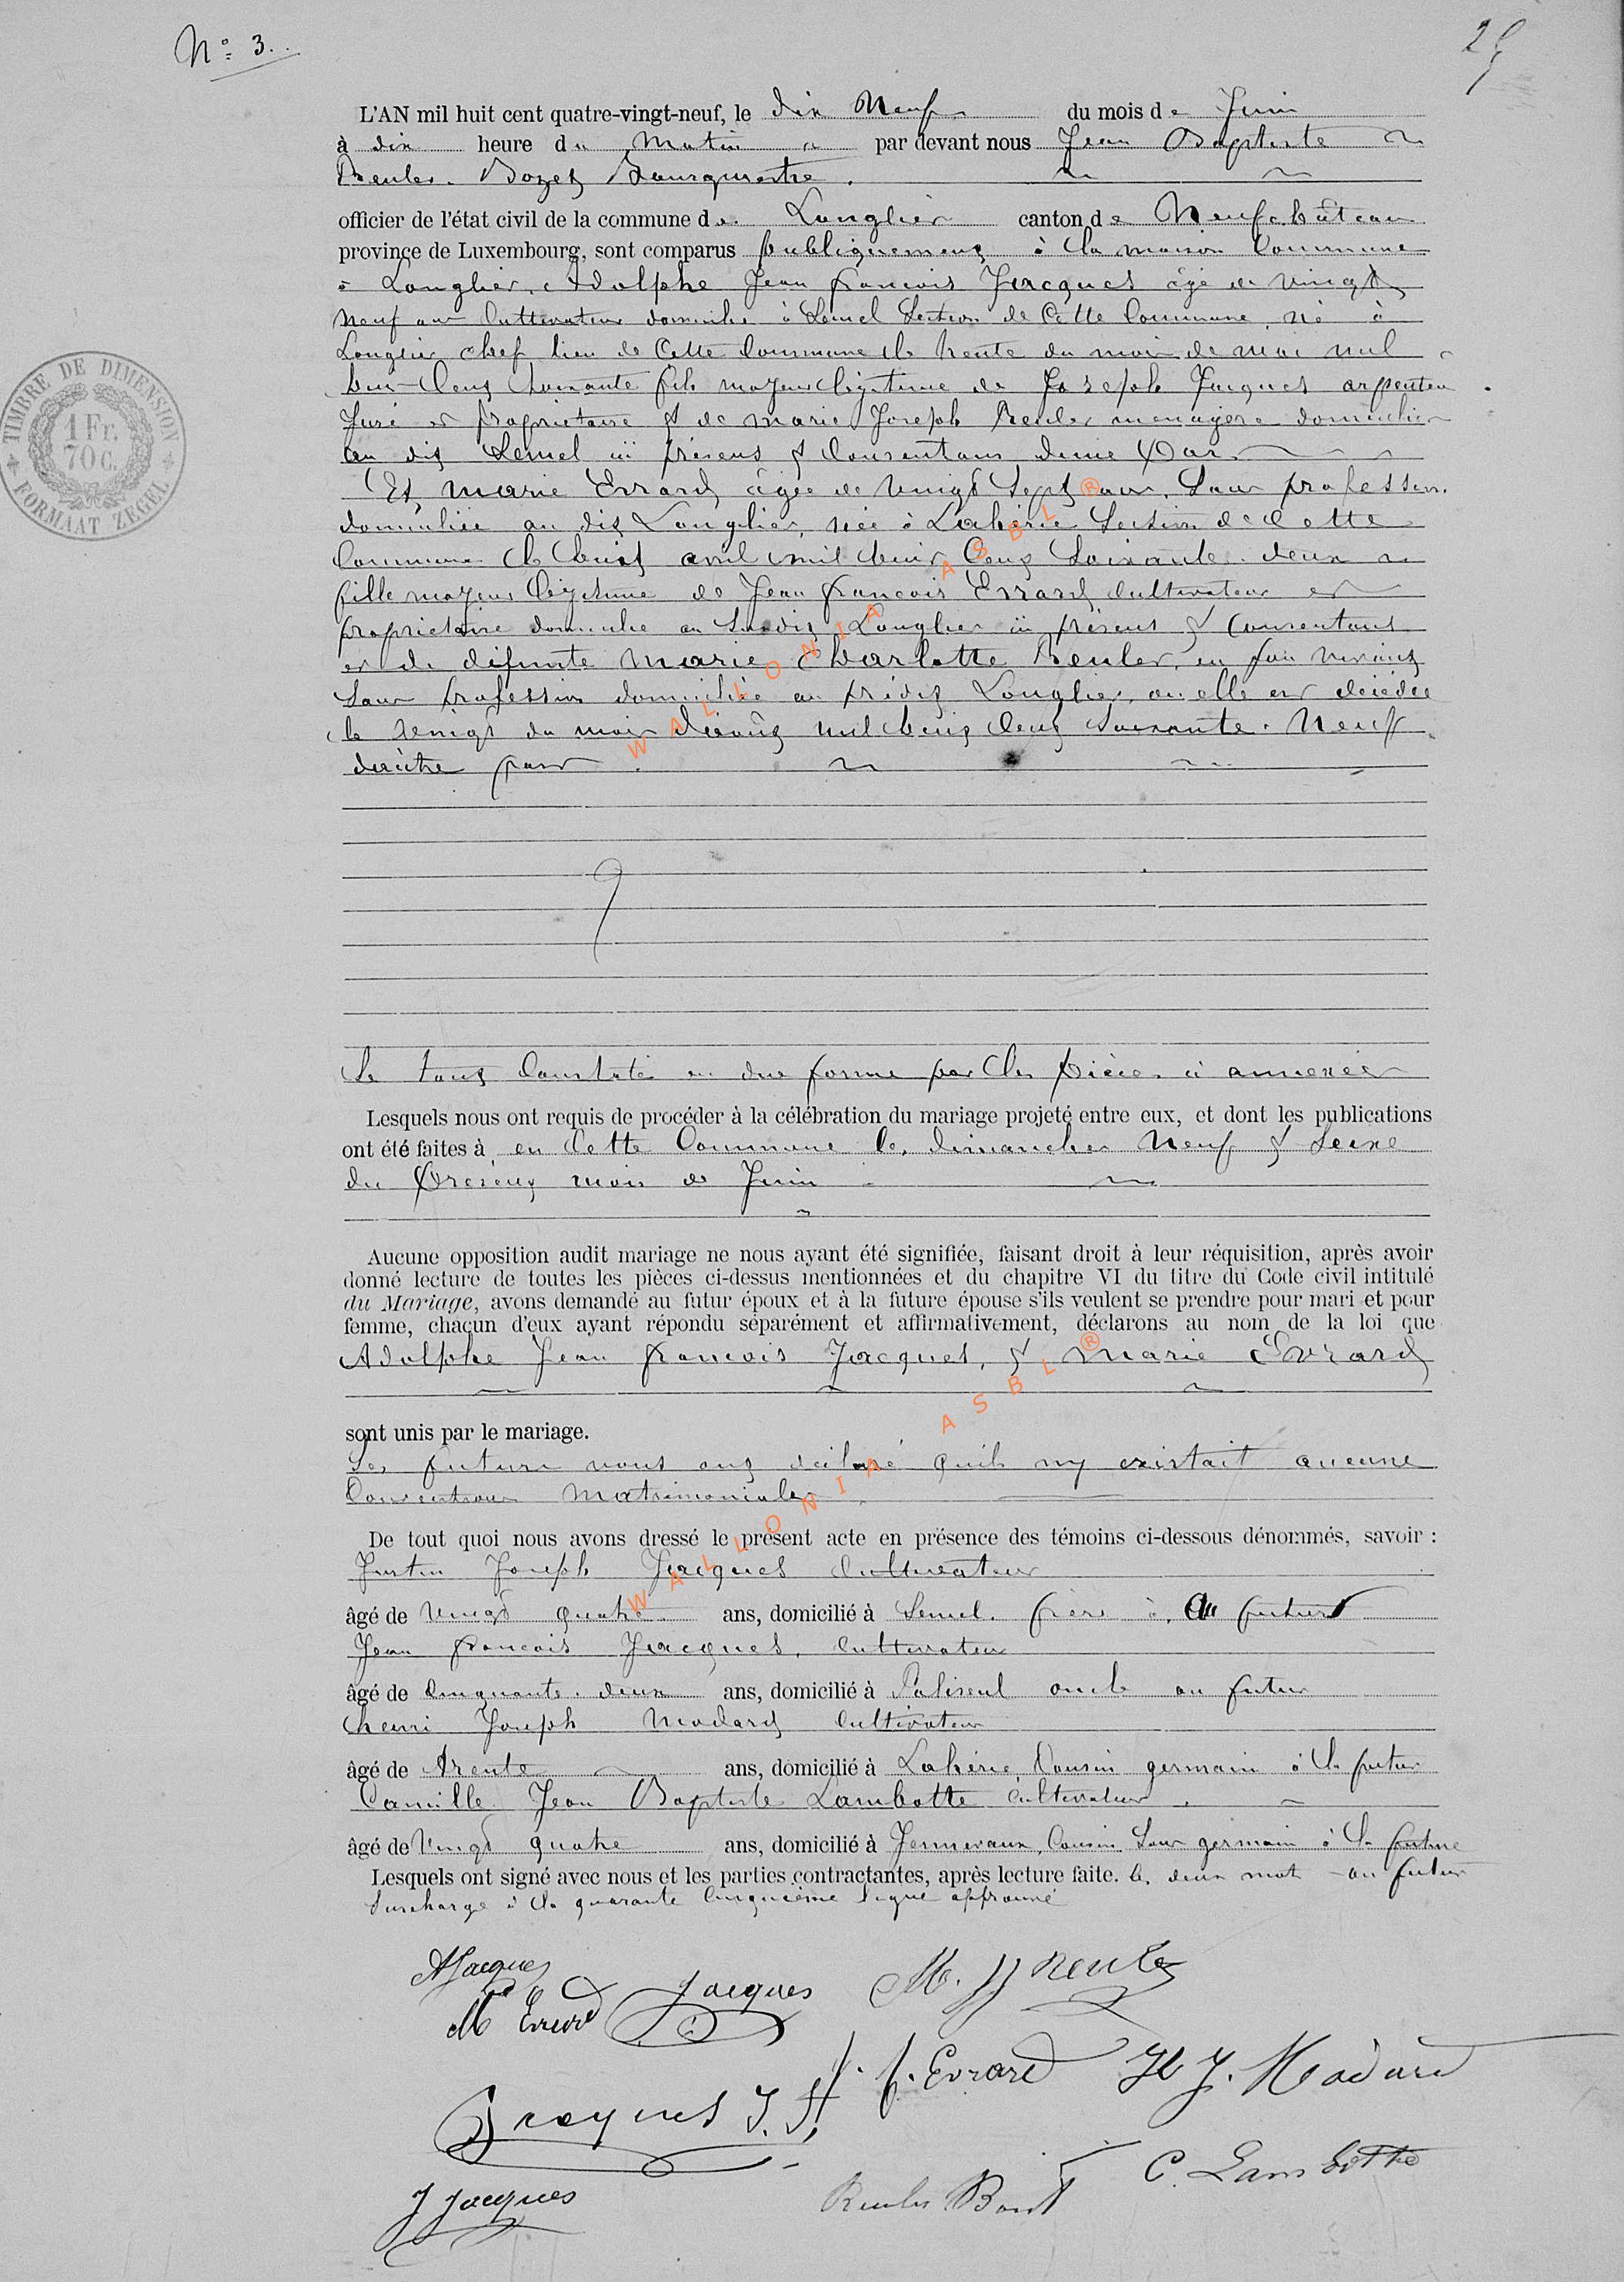 N° 3.
25
L'AN mil huit cent quatre-vingt-neuf, le dix Neuf du mois de Juin
à dix heure du Matin par devant nous Jean Baptiste
Reuler Bourgmestre.
officier de l'état civil de la commune de Longlier canton de Neufchâteau
province de Luxembourg, sont comparus publiquement à la maison Commune
à Longlier, Adolphe Jean francois Jacques âgé de vingt
neuf ans Cultivateur domicilié à Semel Section de Cette Commune, né à
Longlier chef lieu de Cette Commune le trente du mois de mai mil
huit Cent Soixante fils majeur légitime de Joseph Jacques arpenteur
Juré et propriétaire & de marie Joseph Reuler menagère domiciliés
au dit Semel ici présens & Consentans d'une Part
Et marie Errard âgée de vingt Sept ans, Sans profession
domiciliée au dit Longlier, née à Lahérie Section de Cette
Commune le huit avril mil huit Cent Soixante deux
fille majeure légitime de Jean francois Errard Cultivateur et
propriétaire domicilié au Susdit Longlier ici présent & Consentant
et de défunte Marie Charlotte Reuler, en son vivant
Sans profession domiciliée au prédit Longlier, ou elle est décédée
le vingt du mois d'août mil huit Cent Soixante Neuf
d'autre part
Le tout Constaté en due forme par les pièces ci annexées
Lesquels nous ont requis de procéder à la célébration du mariage projeté entre eux, et dont les publications
ont été faites à en Cette Commune les dimanches Neuf & Seize
du Présent mois de Juin
Aucune opposition audit mariage ne nous ayant été signifiée, faisant droit à leur réquisition, après avoir
donné lecture de toutes les pièces ci-dessus mentionnées et du chapitre VI du titre du Code civil intitulé
du Mariage, avons demandé au futur époux et à la future épouse s'ils veulent se prendre pour mari et pour
femme, chacun d'eux ayant répondu séparément et affirmativement, déclarons au nom de la loi que
Adolphe Jean francois Jacques, & Marie Evrard
sont unis par le mariage.
Les futurs nous ont déclaré qu'ils ny existait aucune
Conventions Matrimoniales
De tout quoi nous avons dressé le présent acte en présence des témoins ci-dessous dénommés, savoir :
Justin Joseph Jacques Cultivateur
âgé de Vingt quatre ans, domicilié à Semel. frère au futur
Jean francois Jacques, Cultivateur
âgé de Cinquante deux ans, domicilié à Paliseul oncle au futur
henri Joseph Madard Cultivateur
âgé de trente ans, domicilié à Lahérie, Cousin germain à la future
Camille Jean Baptiste Lambotte Cultivateur
âgé de Vingt quatre ans, domicilié à Jennevaux, Cousin Sous germain à la future
Lesquels ont signé avec nous et les parties contractantes, après lecture faite. les deux mots au futur
Surchargé à la quarante Cinquième ligne approuvé
A Jacques
Jacques
M. J Reuler
M Errard
J. f. Evrard
H J. Madard
Jacques J. f.
C. Lambotte
J Jacques
Reuler Bmst
TIMBRE DE DIMENSION
1 Fr.
70 c.
FORMAAT ZEGEL
WALLONIA ASBL®
WALLONIA ASBL®